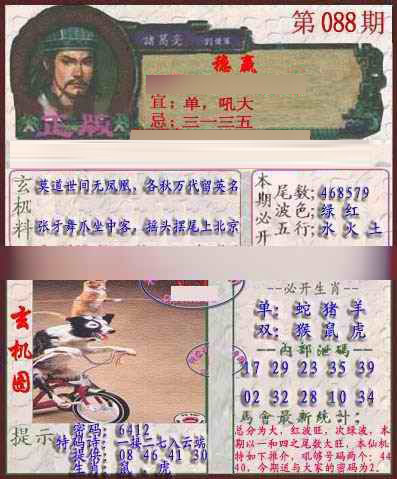 第088期
諸葛亮
稳赢
宜：单，吼大
忌：三一三五
正版
玄机料
莫道世间无凤凰，各秋万代留英名
张牙舞爪坐中客，摇头摆尾上北京
本期必开
尾数：468579
波色：绿 红
五行：水 火 土
玄机图
--必开生肖--
单：蛇 猪 羊
双：猴 鼠 虎
--内部泄码--
17 29 23 35 39
02 32 28 10 34
馬會最新统计：
总分为大，红波旺，次绿波，本
期以一和四之尾数大旺，本仙机
特如下推介，吼够号码两个：44
40，今期送与大家的密码为2．
提示
密码：6412
特码诗：一接二七入云端
提供：08 46 41 30
生肖：鼠 、虎